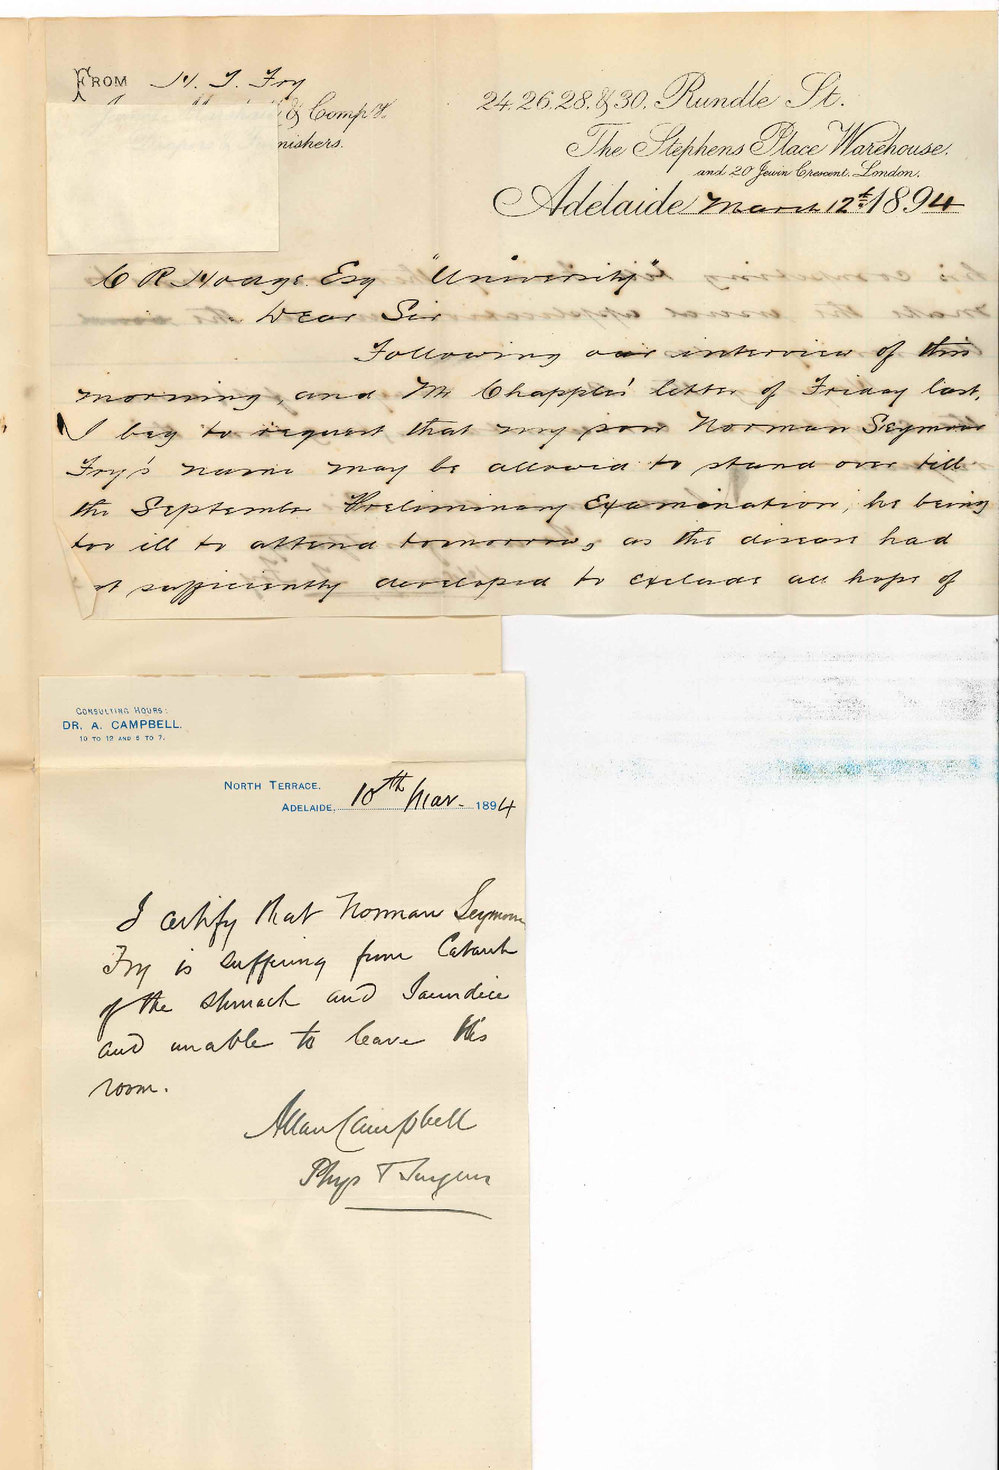 FROM H. T. Fry
& Compy.
nishers.
24. 26. 28. & 30. Rundle St.
The Stephens Place Warehouse.
and 20 Jewin Crescent. London.
Adelaide March 12th 1894
C R Hodge Esq "University"
Dear Sir
Following our interview of this
morning, and Mr Chapple's letter of Friday last,
I beg to request that my son Norman Seymour
Fry's name may be allowed to stand over till
the September Preliminary Examination, he being
too ill to attend tomorrow, as the disease had
t sufficiently developed to exclude all hope of
CONSULTING HOURS:
DR. A. CAMPBELL.
10 TO 12 AND 6 TO 7.
NORTH TERRACE.
ADELAIDE, 10th Mar. 1894
I certify that Norman Seymour
Fry is suffering from Catarrh
of the stomach and Jaundice
and unable to leave his
room.
Allan Campbell
Phys & Surgeon